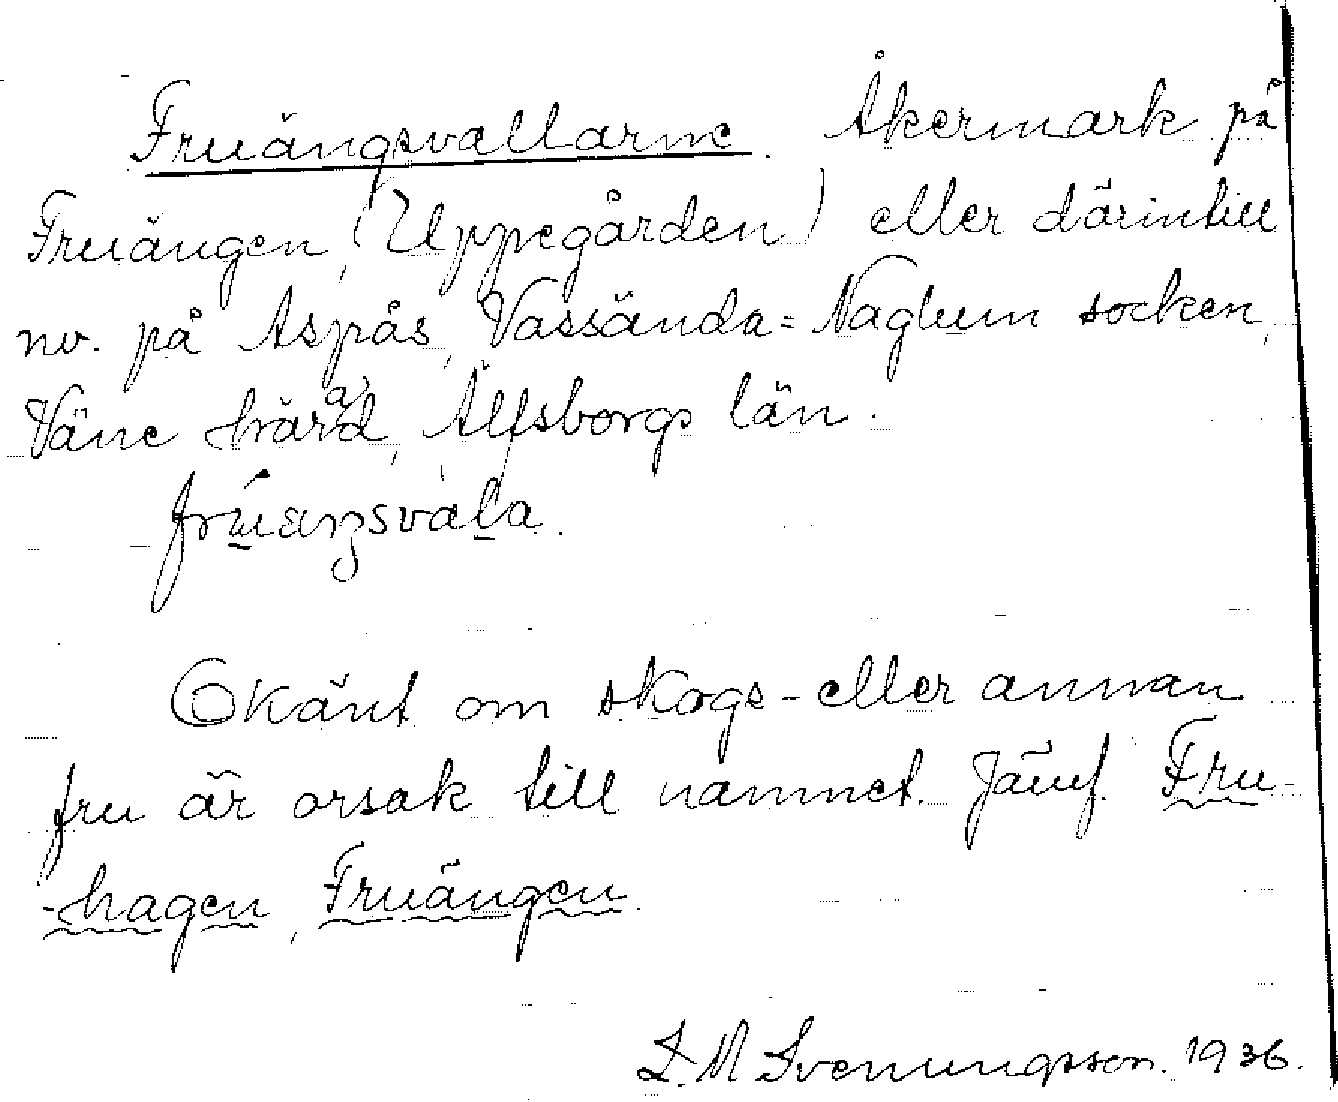 Fruängsvallarne. Åkermark på
Fruängen, (Uppegården) eller därintill
nv. på Aspås, Vassända=Naglum socken,
Väne härad, Älfsborgs län.
Okänt om skogs- eller annan
fru är orsak till namnet. Jämf. Fru-
-hagen, Fruängen.
D. M. Svenungsson. 1936.